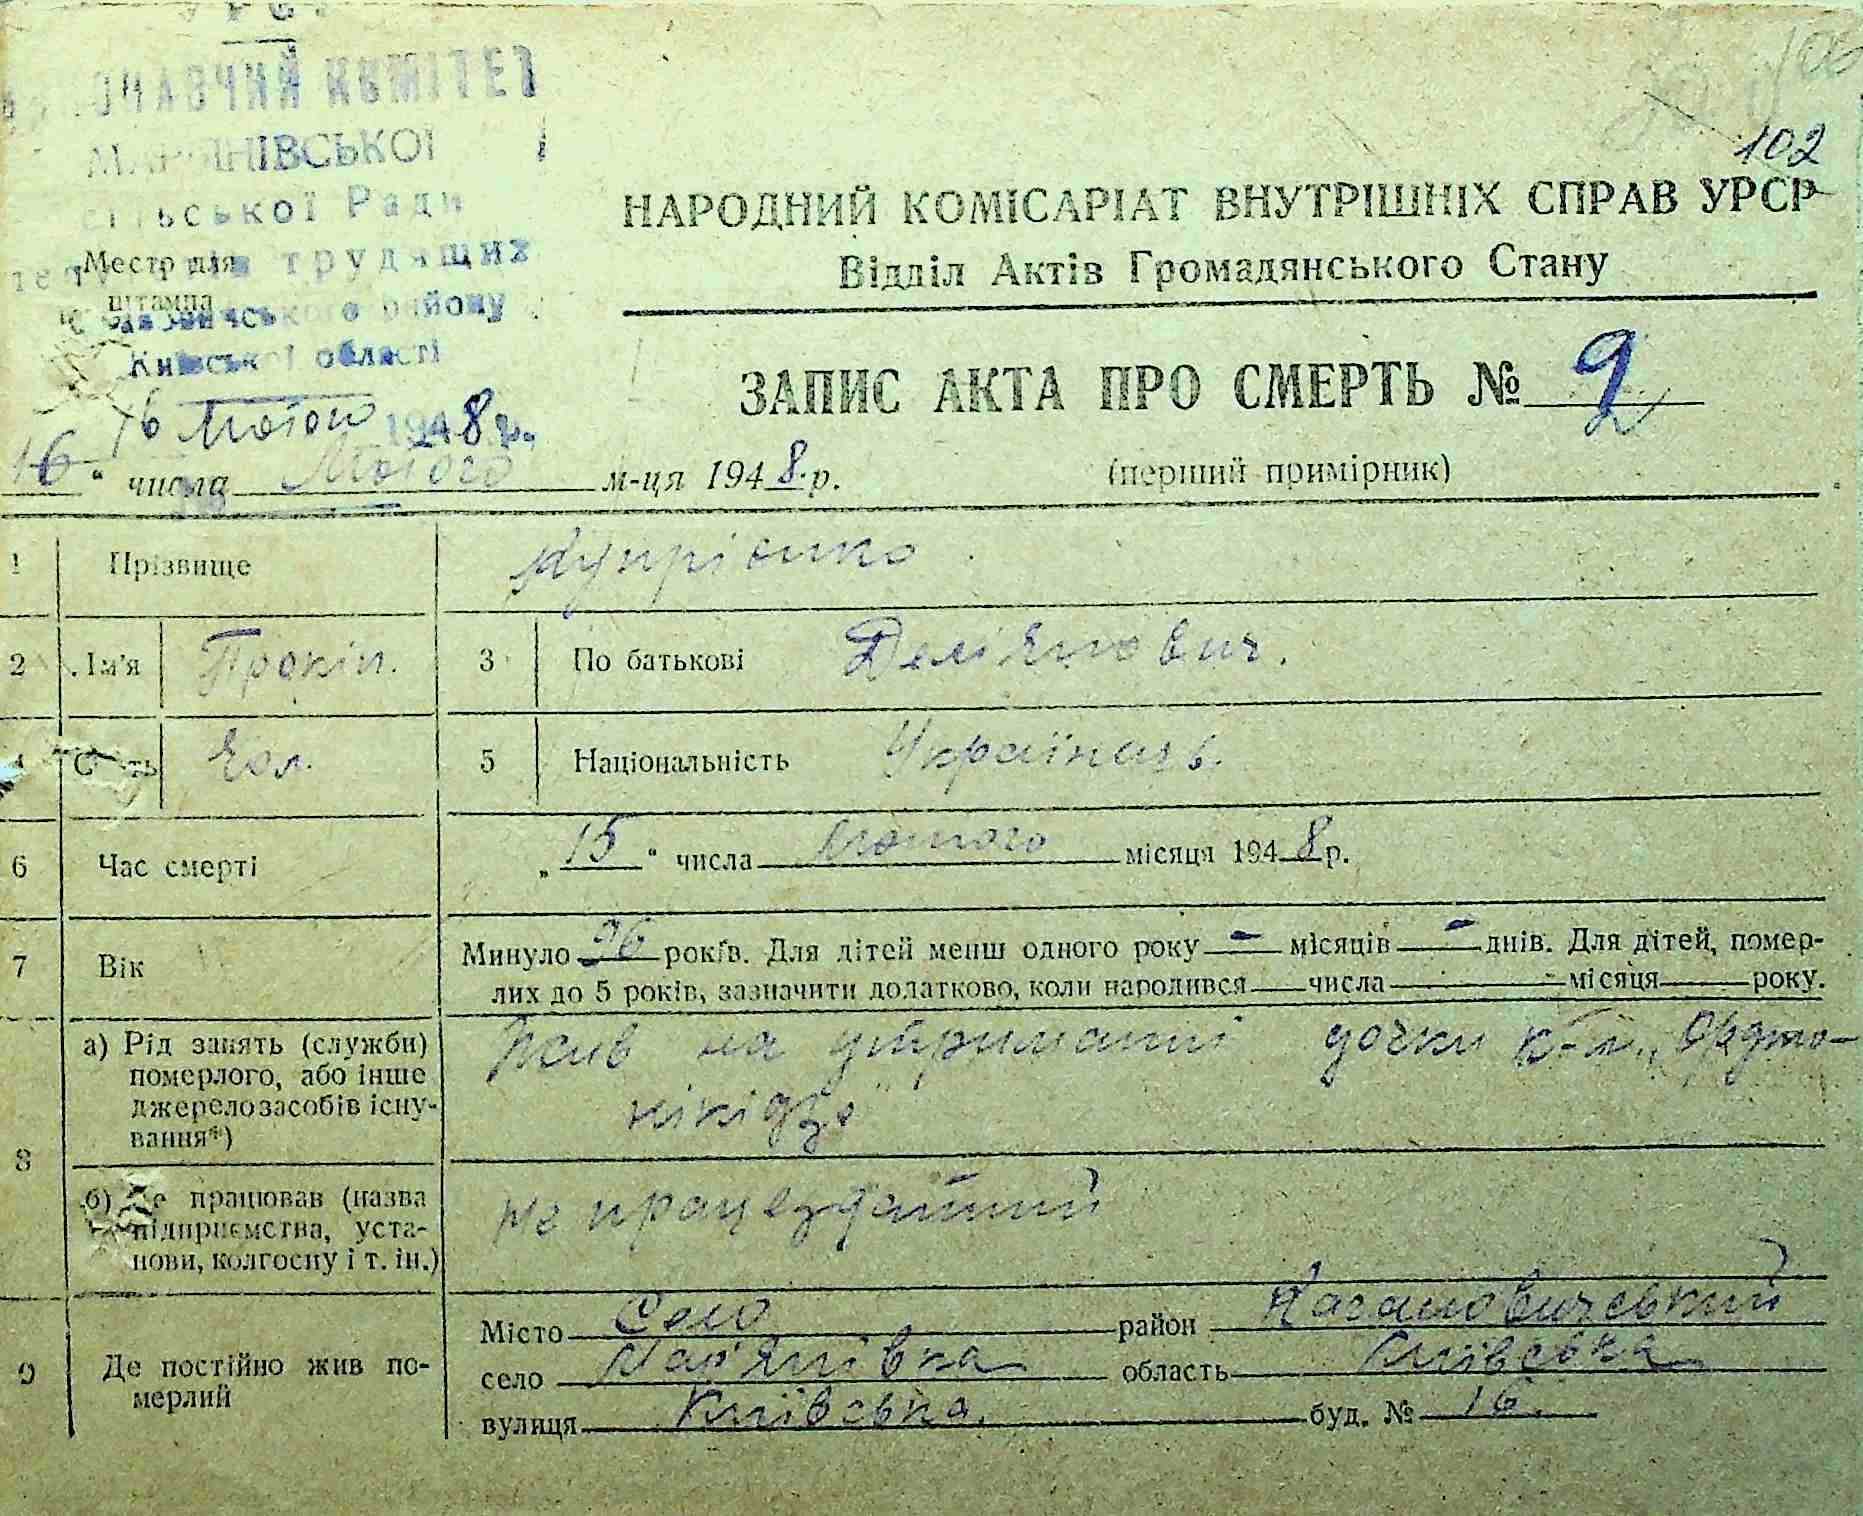 УРСР
ВИКОНАВЧИЙ КОМІТЕТ
МАР'ЯНІВСЬКОЇ
сільської Ради
депутатів трудящих
Кагановичського району
Київської області
Место для
штампа
16 Лютого 1948 р.
102
НАРОДНИЙ КОМІСАРІАТ ВНУТРІШНІХ СПРАВ УРСР
Відділ Актів Громадянського Стану
ЗАПИС АКТА ПРО СМЕРТЬ № 9
16 " числа Лютого м-ця 1948 р. (перший примірник)
1 Прізвище Купрієнко
2 Ім'я Прокіп. 3 По батькові Делі'янович.
4 Стать Чол. 5 Національність Українець.
6 Час смерті „ 15 " числа Лютого місяця 1948 р.
7 Вік Минуло 96 років. Для дітей менш одного року - місяців - днів. Для дітей, помер-
лих до 5 років, зазначити додатково, коли народився числа місяця року.
8 а) Рід занять (служби) померлого, або інше джерело засобів існування*) Жив на утриманні дочки к-п „Орджо-
нікідзе"
б) Де працював (назва підприємства, установи, колгоспу і т. ін.) Не працездатний
9 Де постійно жив померлий Місто Село район Кагановичський
село Мар'янівка область Київська
вулиця Київська. буд. № 16.